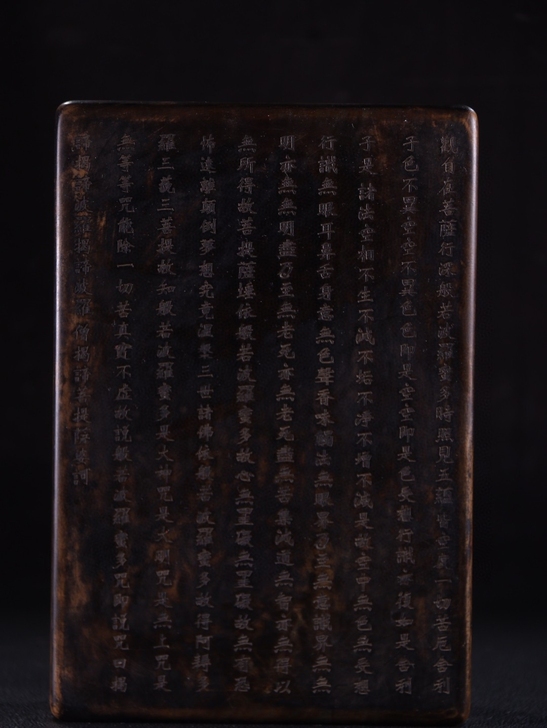 觀自在菩薩行深般若波羅蜜多時照見五蘊皆空度一切苦厄舍利
子色不異空空不異色色即是空空即是色受想行識亦復如是舍利
子是諸法空相不生不滅不垢不淨不增不減是故空中無色無受想
行識無眼耳鼻舌身意無色聲香味觸法無眼界乃至無意識界無無
明亦無無明盡乃至無老死亦無老死盡無苦集滅道無智亦無得以
無所得故菩提薩埵依般若波羅蜜多故心無罣礙無罣礙故無有恐
怖遠離顛倒夢想究竟涅槃三世諸佛依般若波羅蜜多故得阿耨多
羅三藐三菩提故知般若波羅蜜多是大神咒是大明咒是無上咒是
無等等咒能除一切苦真實不虛故說般若波羅蜜多咒即說咒曰揭
諦揭諦波羅揭諦波羅僧揭諦菩提薩婆訶